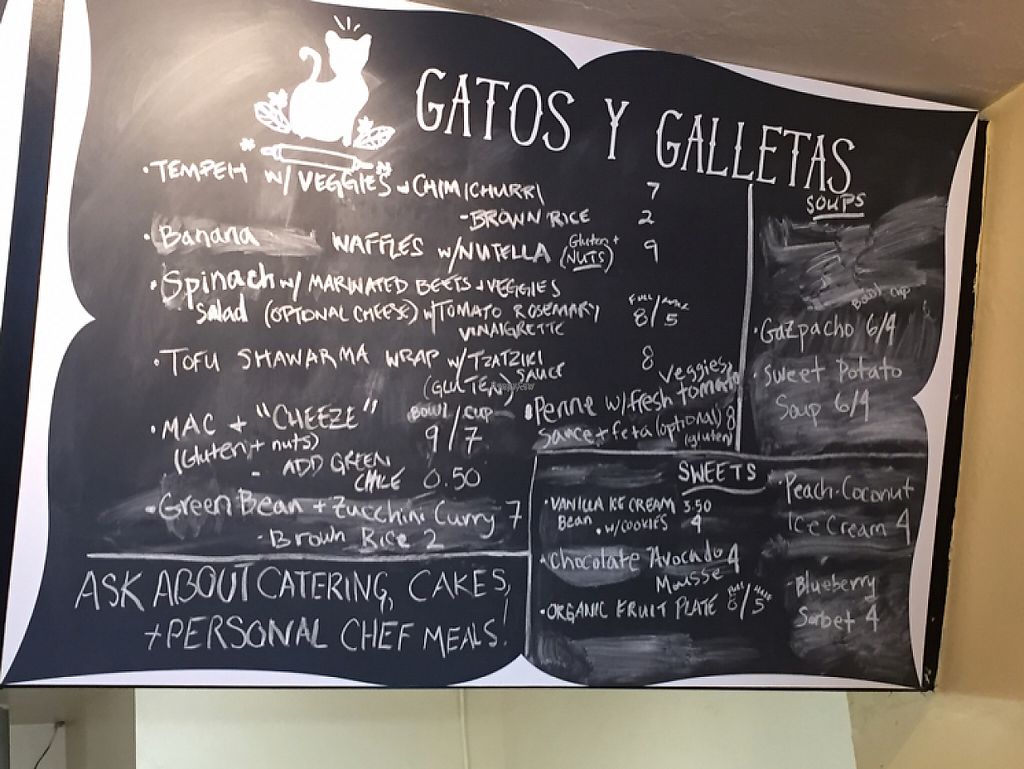 GATOS Y GALLETAS
• TEMPEH W/ VEGGIES + CHIMICHURRI 7
- BROWN RICE 2
• Banana WAFFLES W/NUTELLA (Gluten + NUTS) 9
• Spinach W/ MARINATED BEETS + VEGGIES
Salad (OPTIONAL CHEESE) W/TOMATO ROSEMARY
VINAIGRETTE
FULL/HALF
8/5
• TOFU SHAWARMA WRAP W/TZATZIKI SAUCE 8
(GLUTEN)
• MAC + "CHEEZE" BOWL/CUP
(Gluten + nuts) 9/7
- ADD GREEN
CHILE 0.50
• Green Bean + Zucchini Curry 7
- Brown Rice 2
veggies
• Penne w/fresh tomato
sauce + feta (optional) 8
(gluten)
ASK ABOUT CATERING, CAKES,
+ PERSONAL CHEF MEALS!
SOUPS
Bowl cup
• Gazpacho 6/4
• Sweet Potato
Soup 6/4
SWEETS
• VANILLA ICE CREAM 3.50
Bean • W/COOKIES 4
• Chocolate Avocado 4
Mousse
• ORGANIC FRUIT PLATE FULL/HALF
8/5
• Peach-Coconut
Ice Cream 4
- Blueberry
Sorbet 4